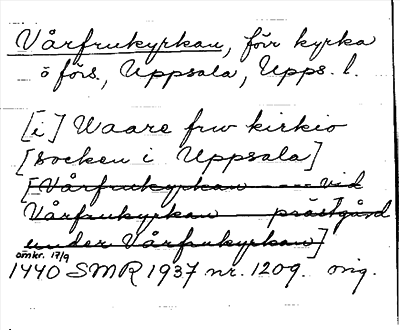 Vårfrukyrkan, förr kyrka
o förs., Uppsala, Upps. l.
[i] Waare frw kirkio
[socken i Uppsala]
[Vårfrukyrkan --- vid
Vårfrukyrkan prästgård
under Vårfrukyrkan]
omkr. 17/9
1440 SMR 1937 nr. 1209. orig.